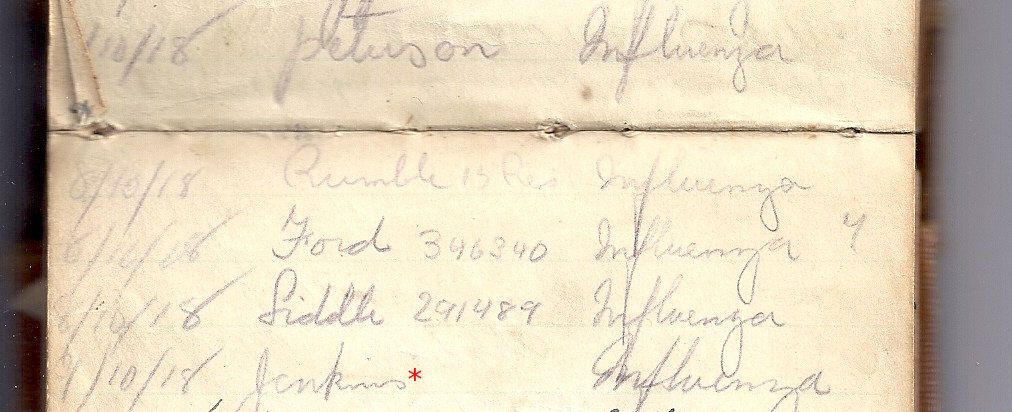 /10/18 Peterson Influenza
8/10/18 Rumble 15 Res Influenza
8/10/18 Ford 346340 Influenza 4
8/10/18 Siddle 291489 Influenza
9/10/18 Jenkins* Influenza